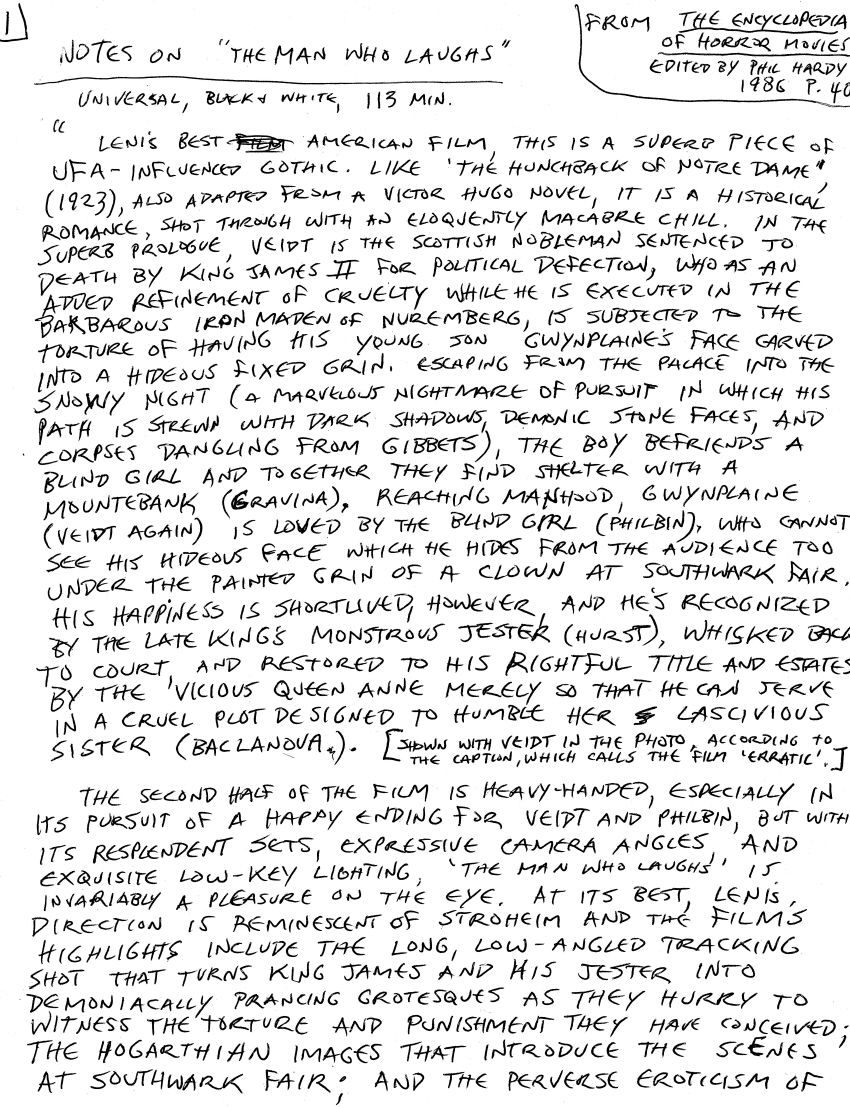 1
FROM THE ENCYCLOPEDIA
OF HORROR MOVIES
EDITED BY PHIL HARDY
1986 P. 40
NOTES ON "THE MAN WHO LAUGHS"
UNIVERSAL, BLACK & WHITE, 113 MIN.
"
LENI'S BEST AMERICAN FILM, THIS IS A SUPERB PIECE OF
UFA-INFLUENCED GOTHIC. LIKE 'THE HUNCHBACK OF NOTRE DAME"
(1923), ALSO ADAPTED FROM A VICTOR HUGO NOVEL, IT IS A HISTORICAL
ROMANCE, SHOT THROUGH WITH AN ELOQUENTLY MACABRE CHILL. IN THE
SUPERB PROLOGUE, VEIDT IS THE SCOTTISH NOBLEMAN SENTENCED TO
DEATH BY KING JAMES II FOR POLITICAL DEFECTION, WHO AS AN
ADDED REFINEMENT OF CRUELTY WHILE HE IS EXECUTED IN THE
BARBAROUS IRON MADEN OF NUREMBERG, IS SUBJECTED TO THE
TORTURE OF HAVING HIS YOUNG SON GWYNPLAINE'S FACE CARVED
INTO A HIDEOUS FIXED GRIN. ESCAPING FROM THE PALACE INTO THE
SNOWY NIGHT (A MARVELOUS NIGHTMARE OF PURSUIT IN WHICH HIS
PATH IS STREWN WITH DARK SHADOWS, DEMONIC STONE FACES, AND
CORPSES DANGLING FROM GIBBETS), THE BOY BEFRIENDS A
BLIND GIRL AND TOGETHER THEY FIND SHELTER WITH A
MOUNTEBANK (GRAVINA). REACHING MANHOOD, GWYNPLAINE
(VEIDT AGAIN) IS LOVED BY THE BLIND GIRL (PHILBIN), WHO CANNOT
SEE HIS HIDEOUS FACE WHICH HE HIDES FROM THE AUDIENCE TOO
UNDER THE PAINTED GRIN OF A CLOWN AT SOUTHWARK FAIR.
HIS HAPPINESS IS SHORTLIVED, HOWEVER, AND HE'S RECOGNIZED
BY THE LATE KING'S MONSTROUS JESTER (HURST), WHISKED BACK
TO COURT, AND RESTORED TO HIS RIGHTFUL TITLE AND ESTATES
BY THE VICIOUS QUEEN ANNE MERELY SO THAT HE CAN SERVE
IN A CRUEL PLOT DESIGNED TO HUMBLE HER LASCIVIOUS
SISTER (BACLANOVA*). [SHOWN WITH VEIDT IN THE PHOTO, ACCORDING TO
THE CAPTION, WHICH CALLS THE FILM 'ERRATIC'.]
THE SECOND HALF OF THE FILM IS HEAVY-HANDED, ESPECIALLY IN
ITS PURSUIT OF A HAPPY ENDING FOR VEIDT AND PHILBIN, BUT WITH
ITS RESPLENDENT SETS, EXPRESSIVE CAMERA ANGLES, AND
EXQUISITE LOW-KEY LIGHTING, 'THE MAN WHO LAUGHS' IS
INVARIABLY A PLEASURE ON THE EYE. AT ITS BEST, LENI'S
DIRECTION IS REMINESCENT OF STROHEIM AND THE FILM'S
HIGHLIGHTS INCLUDE THE LONG, LOW-ANGLED TRACKING
SHOT THAT TURNS KING JAMES AND HIS JESTER INTO
DEMONIACALLY PRANCING GROTESQUES AS THEY HURRY TO
WITNESS THE TORTURE AND PUNISHMENT THEY HAVE CONCEIVED;
THE HOGARTHIAN IMAGES THAT INTRODUCE THE SCENES
AT SOUTHWARK FAIR; AND THE PERVERSE EROTICISM OF